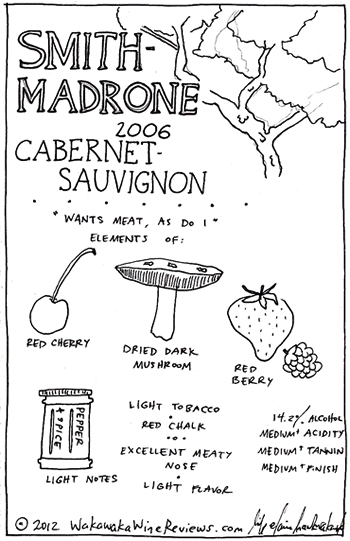 SMITH-
MADRONE
2006
CABERNET-
SAUVIGNON
"WANTS MEAT, AS DO I"
ELEMENTS OF:
RED CHERRY
DRIED DARK
MUSHROOM
RED
BERRY
PEPPER
+ SPICE
LIGHT NOTES
LIGHT TOBACCO
RED CHALK
EXCELLENT MEATY
NOSE
LIGHT FLAVOR
14.2% ALCOHOL
MEDIUM+ ACIDITY
MEDIUM+ TANNIN
MEDIUM+ FINISH
© 2012 WakawakaWineReviews.com